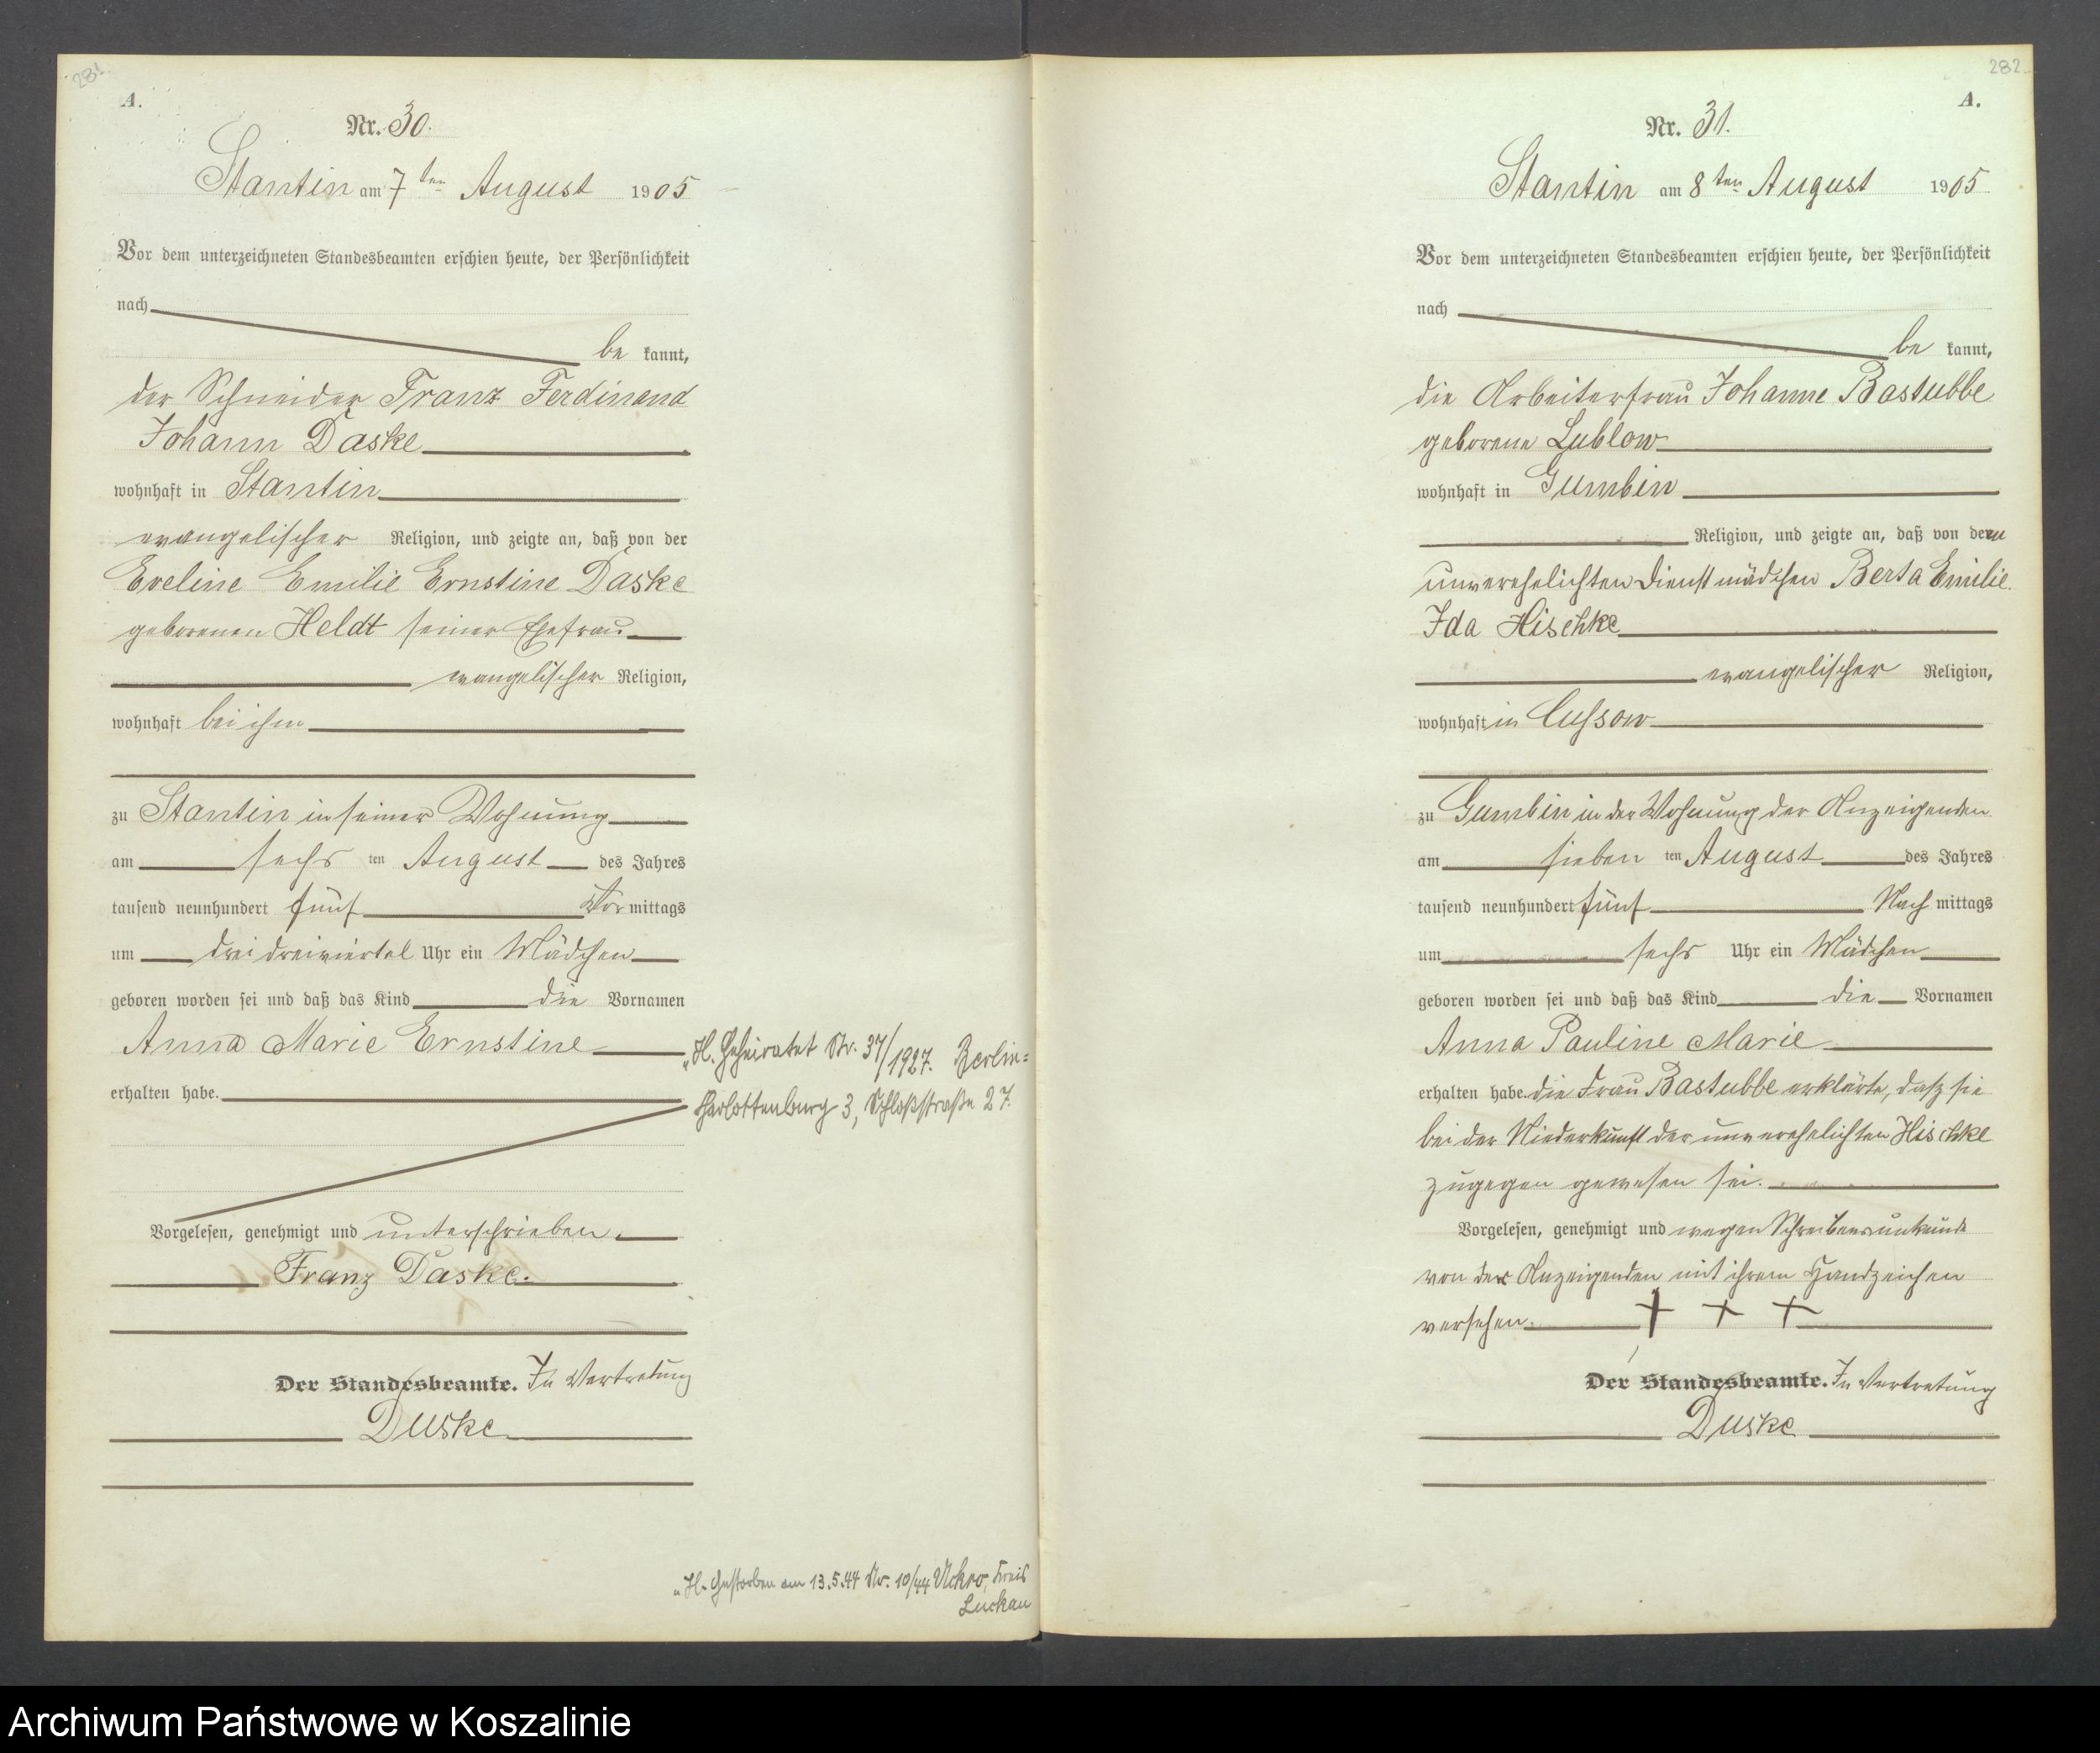 281
A.
Nr. 30.
Stantin am 7ten August 1905
Vor dem unterzeichneten Standesbeamten erschien heute, der Persönlichkeit
nach
be kannt,
der Schneider Franz Ferdinand
Johann Daske
wohnhaft in Stantin
evangelischer Religion, und zeigte an, daß von der
Eveline Emilie Ernstine Daske
geborenen Heldt seiner Ehefrau
evangelischer Religion,
wohnhaft bei ihm
zu Stantin in seiner Wohnung
am sechs ten August des Jahres
tausend neunhundert fünf Vor mittags
um drei dreiviertel Uhr ein Mädchen
geboren worden sei und daß das Kind die Vornamen
Anna Marie Ernstine
erhalten habe.
Vorgelesen, genehmigt und unterschrieben.
Franz Daske.
Der Standesbeamte. In Vertretung
Duske
„H. Geheiratet Nr. 37/1927. Berlin=
Charlottenburg 3, Schloßstraße 27.
„H. Gestorben am 13.5.44 Nr. 10/44 Uckro, Kreis
Luckau
282
A.
Nr. 31.
Stantin am 8ten August 1905
Vor dem unterzeichneten Standesbeamten erschien heute, der Persönlichkeit
nach
be kannt,
die Arbeiterfrau Johanne Bastubbe
geborene Lublow
wohnhaft in Gumbin
Religion, und zeigte an, daß von dem
unverehelichten Dienstmädchen Berta Emilie
Ida Hischke
evangelischer Religion,
wohnhaft in Cussow
zu Gumbin in der Wohnung der Anzeigenden
am sieben ten August des Jahres
tausend neunhundert fünf Nach mittags
um sechs Uhr ein Mädchen
geboren worden sei und daß das Kind die Vornamen
Anna Pauline Marie
erhalten habe. die Frau Bastubbe erklärte, daß sie
bei der Niederkunft der unverehelichten Hischke
zugegen gewesen sei.
Vorgelesen, genehmigt und wegen Schreibensunkunde
von der Anzeigenden mit ihrem Handzeichen
versehen. + + +
Der Standesbeamte. In Vertretung
Duske
Archiwum Państwowe w Koszalinie